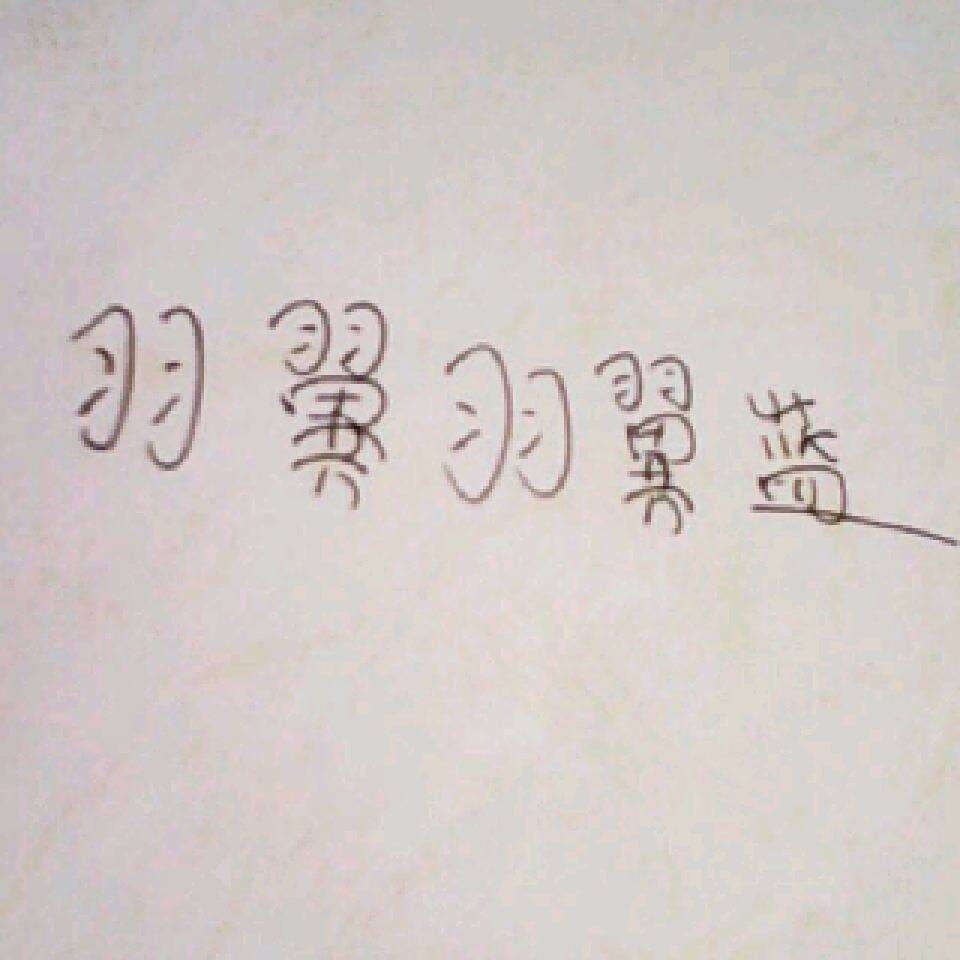 羽翼羽翼蓝